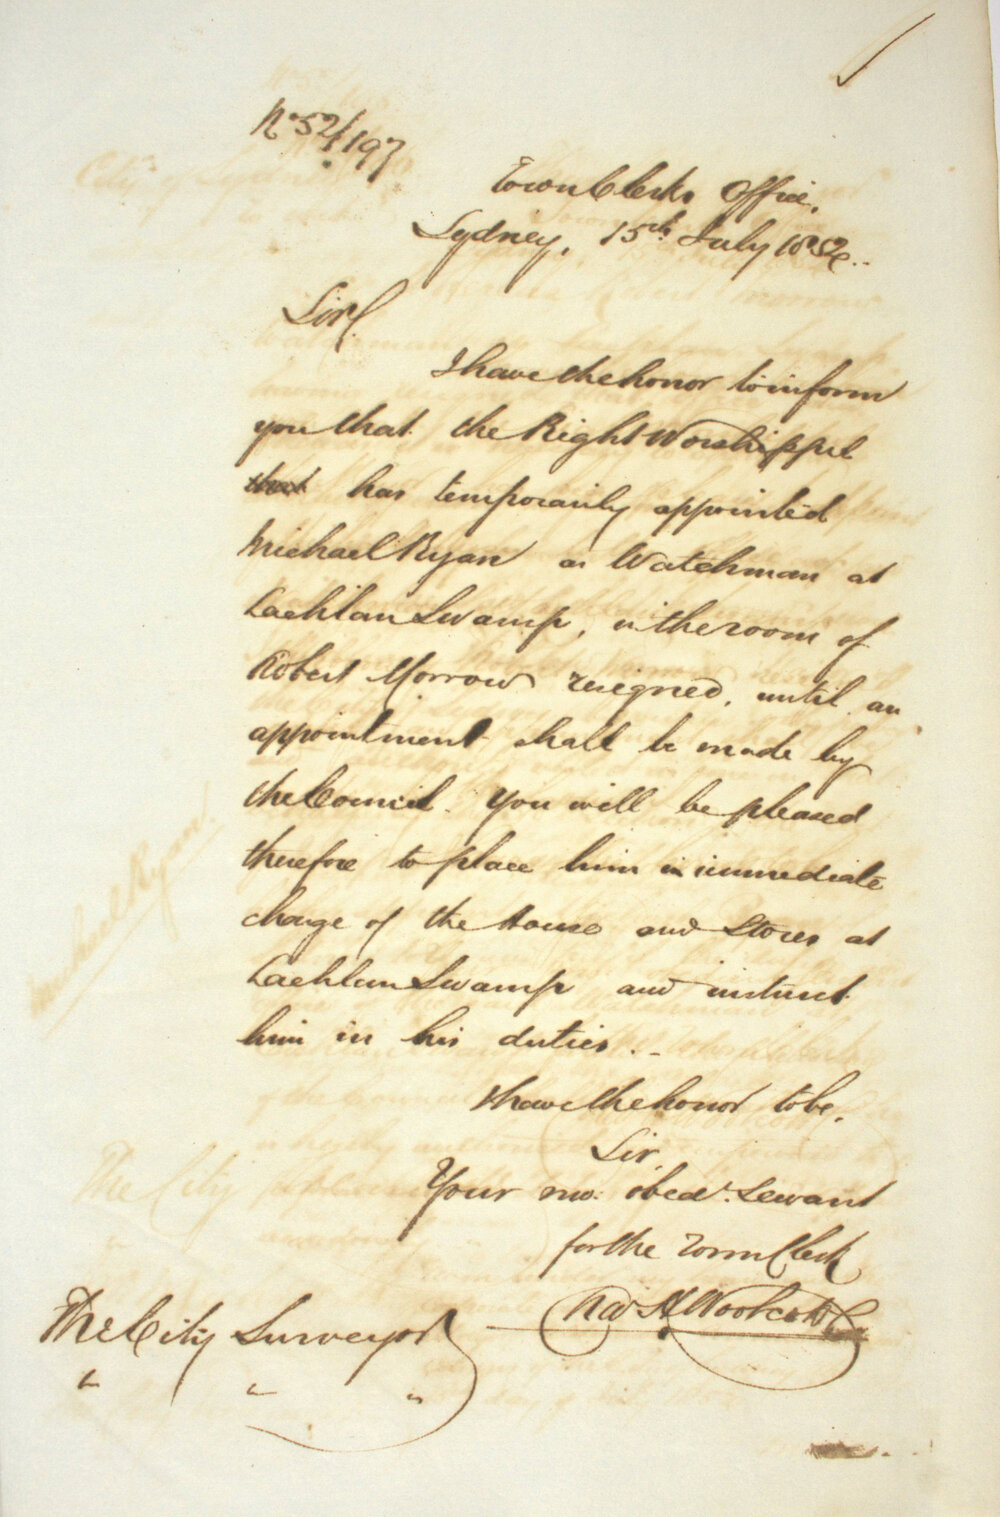 No 52/197
Town Clerks Office,
Sydney, 15th July 1852..
Sir/.
I have the honor to inform
you that the Right Worshipful
that has temporarily appointed
Michael Ryan as Watchman at
Lachlan Swamp, in the room of
Robert Morrow resigned, until an
appointment shall be made by
the Council. You will be pleased
therefore to place him in immediate
charge of the House and Stores at
Lachlan Swamp and instruct
him in his duties..
I have the honor to be,
Sir,
Your mo: obedt. Servant
for the Town Clerk
Woolcott
The City Surveyor
" " "